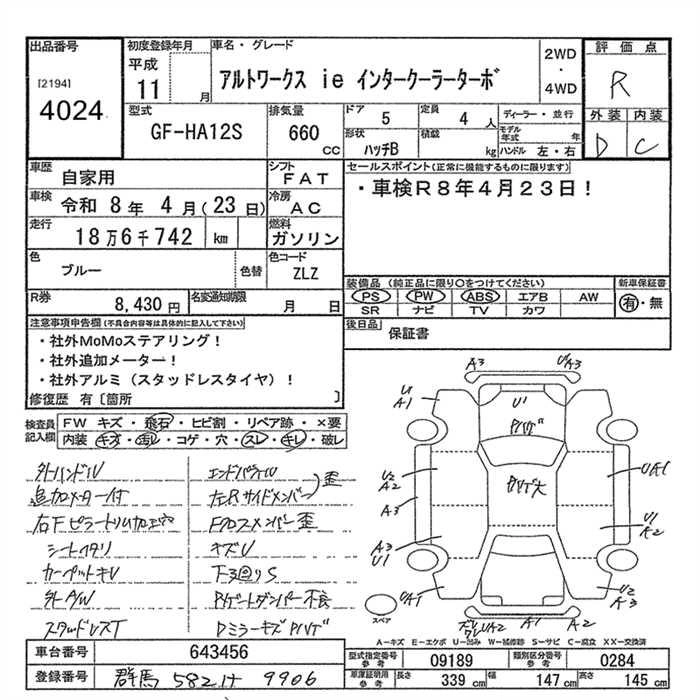 出品番号
[2194]
4024
初度登録年月
平成
11
月
車名・グレード
アルトワークス ie インタークーラーターボ
2WD
・
4WD
評価点
R
外装 内装
D C
型式
GF-HA12S
排気量
660
CC
ドア
5
定員
4 人
形状
ハッチB
積載
kg
ディーラー・並行
モデル年式 年
ハンドル 左・右
車歴
自家用
シフト
FAT
車検
令和 8年 4月(23日)
冷房
AC
走行
18万6千742 km
燃料
ガソリン
色
ブルー
色替
色コード
ZLZ
R券
8,430 円
名変通知期限
月 日
セールスポイント(正常に機能するものに限ります)
・車検R8年4月23日!
装備品 (純正品に限り○をつけてください)
PS PW ABS エアB AW
SR ナビ TV カワ
新車保証書
有・無
後日品
保証書
注意事項申告欄(不具合内容等は具体的に記入して下さい)
・社外MoMoステアリング!
・社外追加メーター!
・社外アルミ(スタッドレスタイヤ)!
修復歴 有〔箇所 〕
検査員記入欄
FW キズ・飛石・ヒビ割・リペア跡・×要
内装 キズ・汚レ・コゲ・穴・スレ・キレ・破レ
外ハンドル
追加メーター付
右Fピラートリム加工穴
シートヘタリ
カーペットキレ
外A/W
スタッドレスT
エンドパネル
左右Rサイドメンバー
歪
Fクロスメンバー歪
キズU
下回りS
Rゲートダンパー不良
Dミラーキズ
A3
UA3
U1
A1
U1
U2
A2
A3
A3
U1
UA1
UA1
U1
A2
U2
A3
UA2
A1
A2
スペア
A-キズ E-エクボ U-凹み W-補修跡 S-サビ C-腐食 XX-交換済
車台番号
643456
登録番号
群馬 582 サ 9906
型式指定番号
参考
09189
類別区分番号
参考
0284
車庫証明用
参考
長さ
339 cm
幅
147 cm
高さ
145 cm